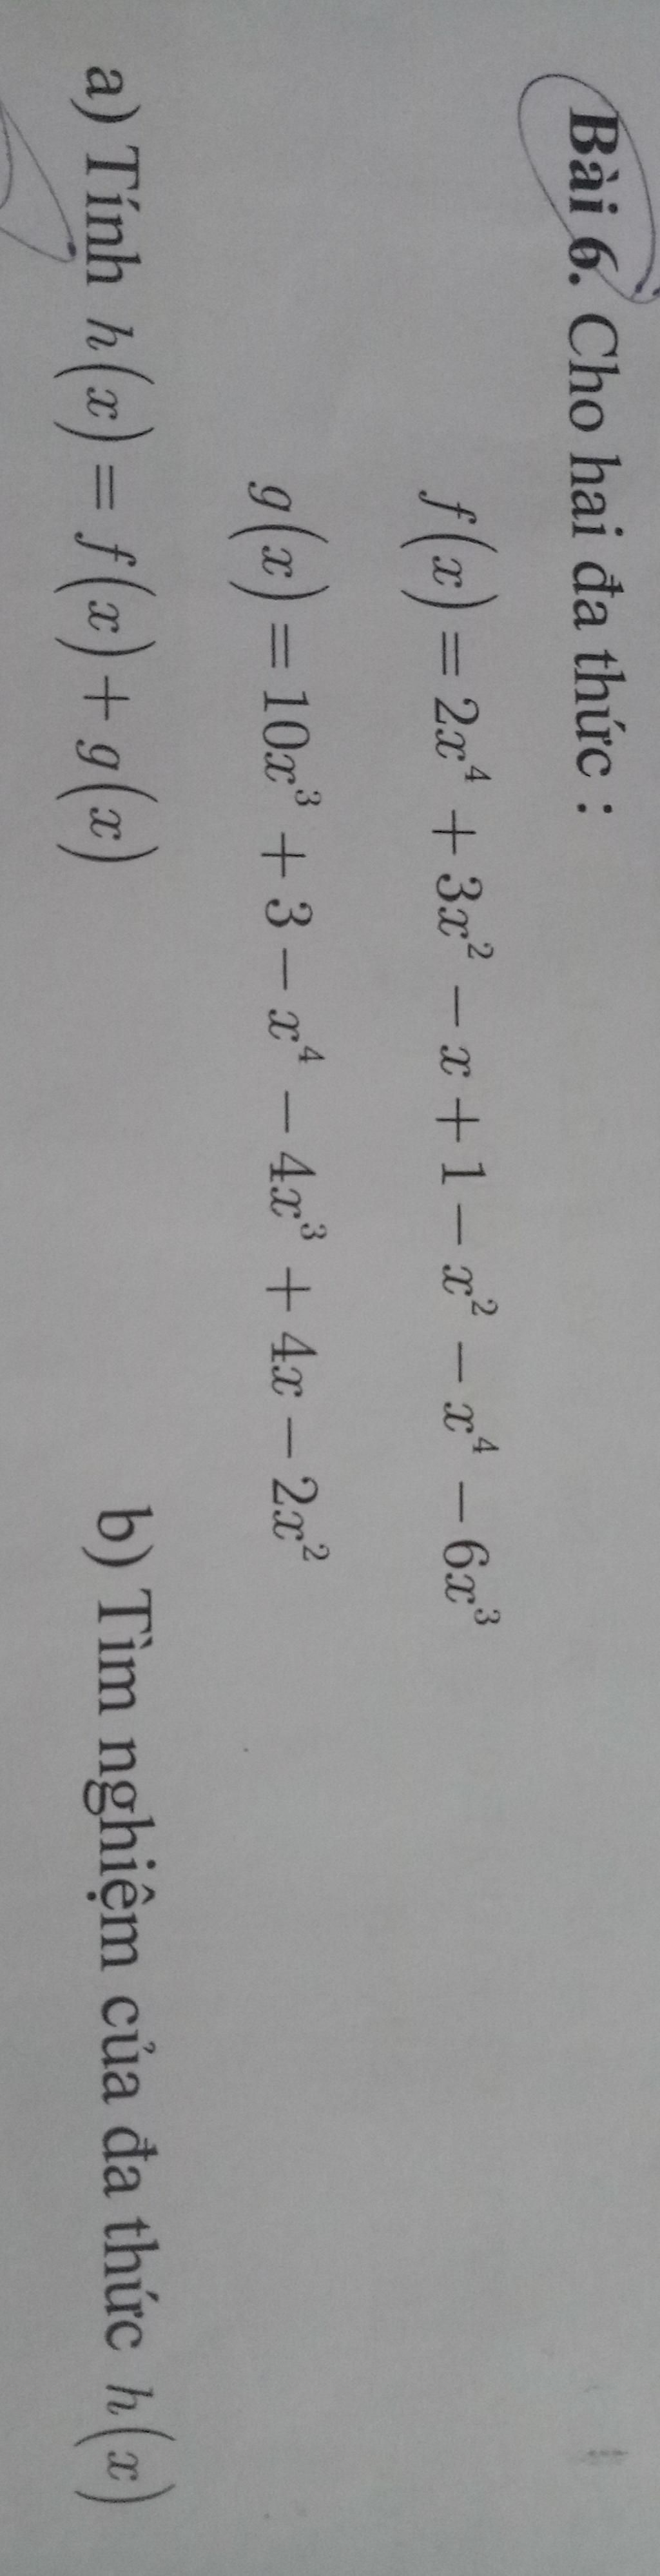 Bài 6. Cho hai đa thức :
f(x) = 2x⁴ + 3x² − x + 1 − x² − x⁴ − 6x³
g(x) = 10x³ + 3 − x⁴ − 4x³ + 4x − 2x²
a) Tính h(x) = f(x) + g(x) b) Tìm nghiệm của đa thức h(x)